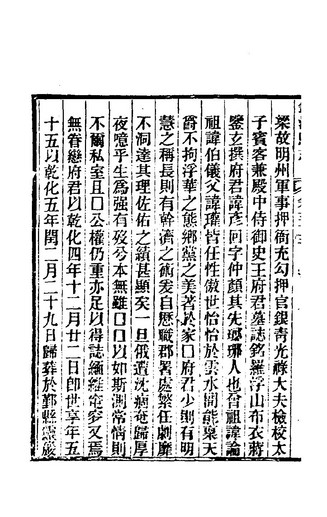 梁故明州軍事押衙充勾押官銀青光祿大夫檢校太
子賓客兼殿中侍御史王府君墓誌銘羅浮山布衣蔣
鑒玄撰府君諱彥回字仲顏其先瑯琊人也曾祖諱論
祖諱伯儀父諱瓌皆任性傲世怡怡於雲水間能稟天
爵不拘浮華之態鄉黨之美著於家□府君少則有明
慧之稱長則有幹濟之術委自懸職郡署處繁任劇靡
不洞達其理佐佑之績甚顯矣一旦俄遘沈痾奄歸厚
夜噫乎生爲強有歿兮本無難□□以如斯測常情則
不爾私室且□公權仍重亦足以得誌緬維奄穸又焉
無眷戀府君以乾化四年十二月廿二日卽世享年五
十五以乾化五年閏二月二十九日歸葬於鄞縣靈巖